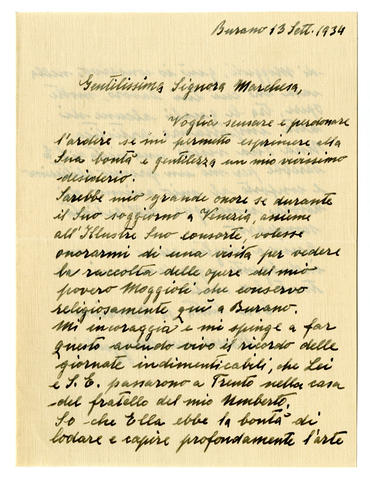 Burano 13 Sett. 1934
Gentilissima Signora Marchesa,
Voglia scusare e perdonare
l'ardire se mi permetto esprimere alla
Sua bontà e gentilezza un mio vivissimo
desiderio.
Sarebbe mio grande onore se durante
il Suo soggiorno a Venezia, assieme
all'Illustre Suo consorte, volesse
onorarmi di una visita per vedere
la raccolta delle opere del mio
povero Moggioli che conservo
religiosamente quì a Burano.
Mi incoraggia e mi spinge a far
questo avendo vivo il ricordo delle
giornate indimenticabili, che Lei
e S. E. passarono a Trento nella casa
del fratello del mio Umberto.
So che Ella ebbe la bontà di
lodare e capire profondamente l'arte